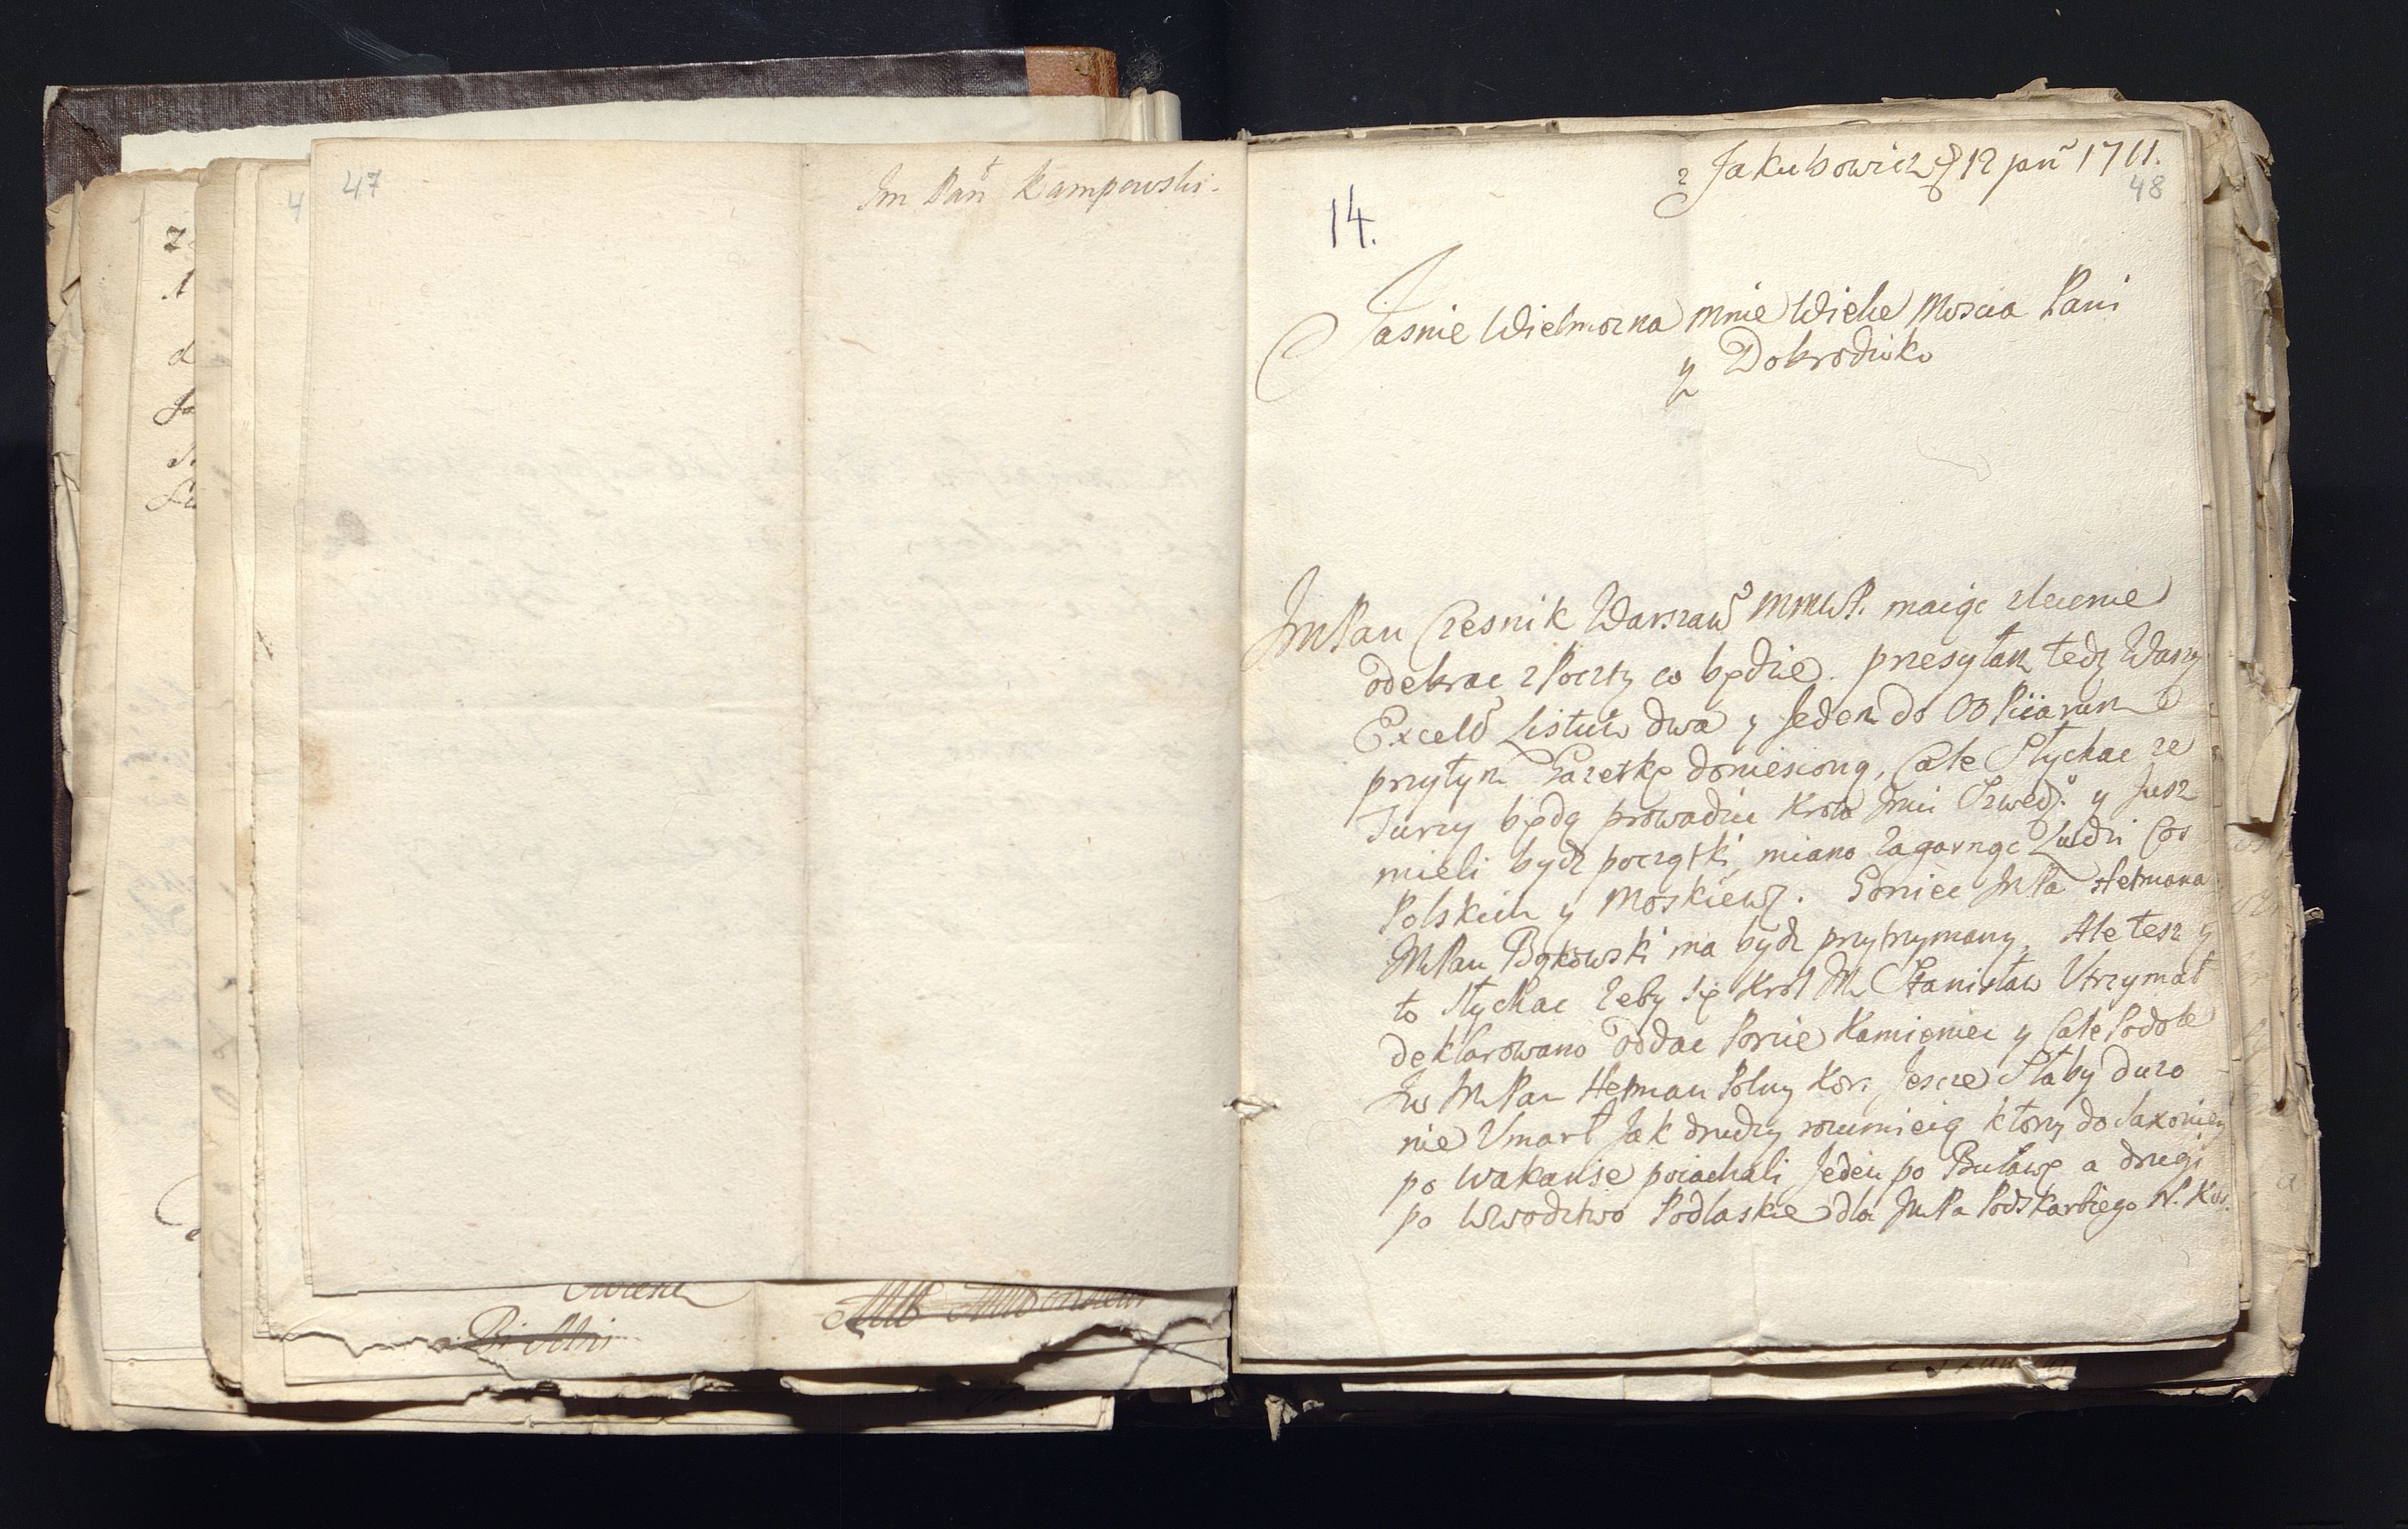 47
Jm Pan Kampowski.
z Jakubowicz d 12 pn 1711.
48
14.
Jasnie Wielmozna mnie Wielce Moscia Pani
y Dobrodziko
JmPan Czesnik Warszaw MMWP. maiąc zlecenie
odebrac z Poczty co będzie. przesyłam tedy Waszy
Excell Listuw dwa y Jeden do OO Piiarum
przytym Gazetkę doniesioną, Cale Słychac ze
Turcy będą prowadzic Krola Jmci Szwedz. y Jusz
mieli bydz początki, miano zagarnąc Ludzi Cos
Polskich y Moskiewz. Goniec JmPa Hetmana
JmPan Bąkowski ma bydz przytrzymany, Ale tesz y
to słychac zeby się Krol Jm Stanisław Utrzymał
deklarowano oddac Porcie Kamieniec y Cale Podole
Jw JmPan Hetman Polny Kor. Jescze Słaby duzo
nie Umarł Jak drudzy rozumieią ktory do Saxoniey
po wakanse poiachali Jeden po Buławę a drugi
po Wwodztwo Podlaskie dla JmPa Podskarbiego N. Kor.